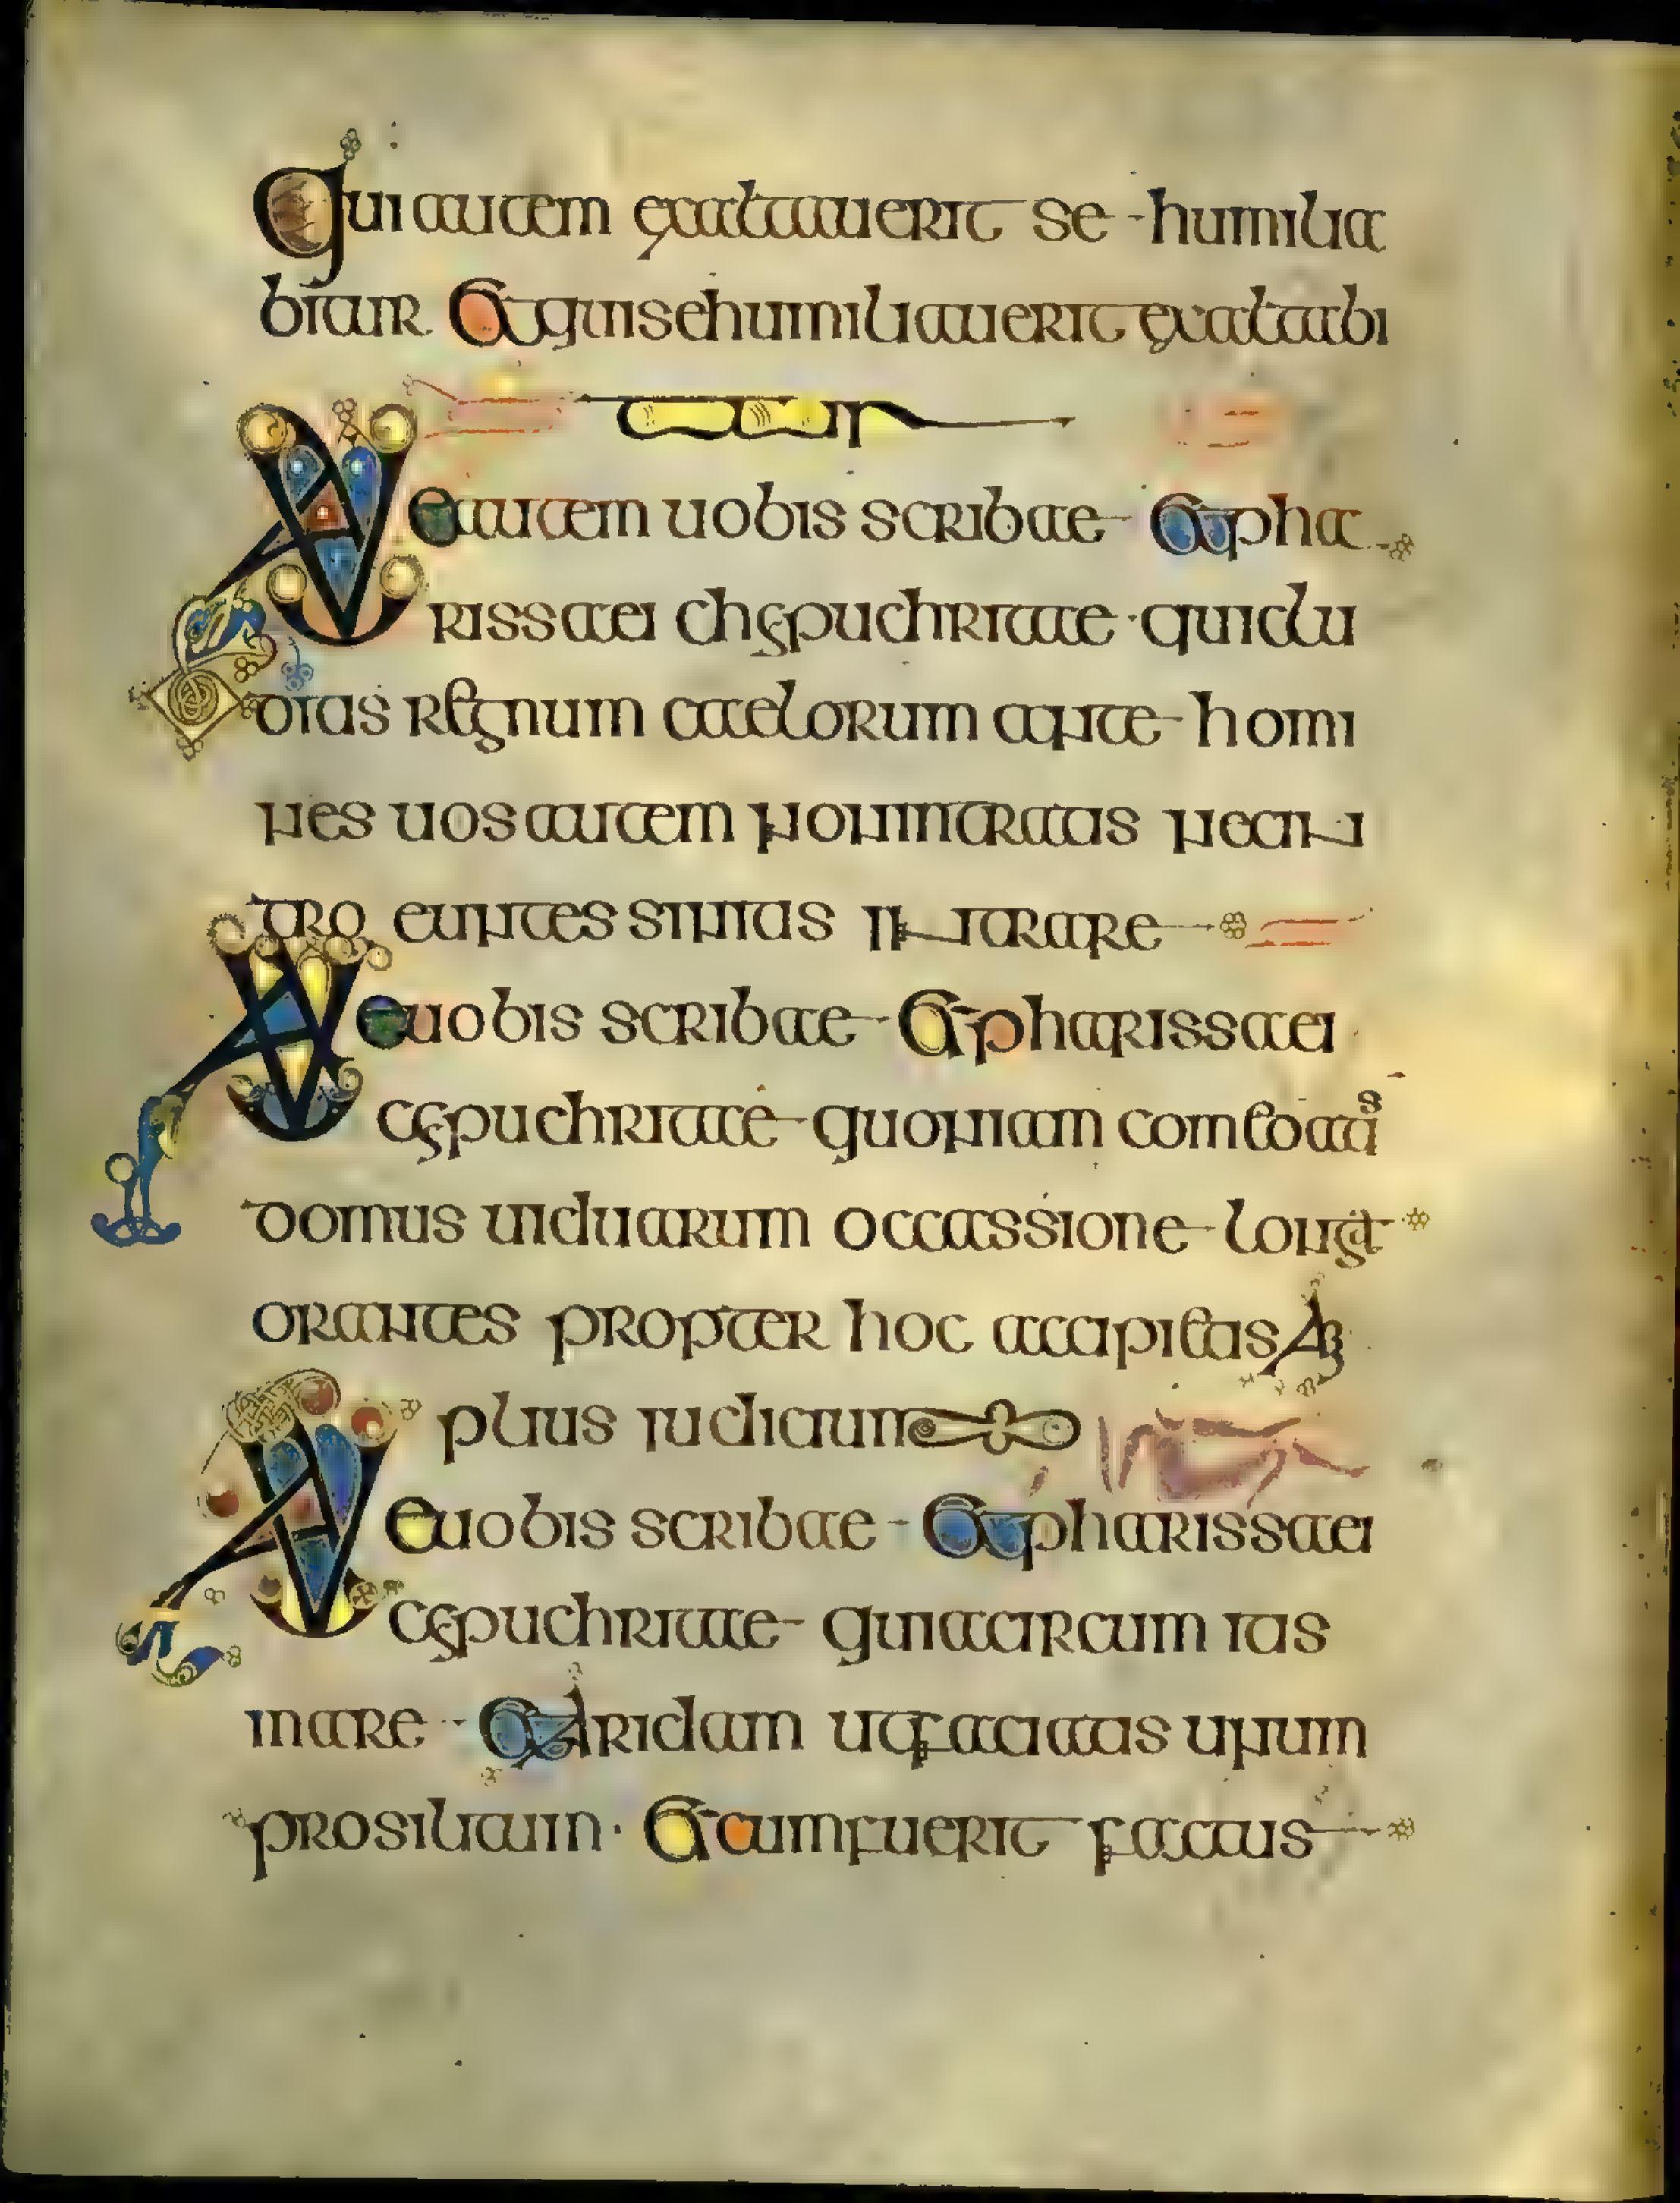 Qui autem exaltauerit se humilia
bitur Et qui se humiliauerit exaltabi
tur
Vae autem uobis scribae et pha
rissaei chypuchritae qui clu
ditis regnum caelorum ante homi
nes uos autem non intratis nec in
tro euntes sinitis intrare
Vae uobis scribae et pharissaei
typuchritae quoniam comeditis
domus uiduarum occassione longa
orantes propter hoc accipietis Am
plius iudicium
Vae uobis scribae et pharissaei
typuchritae quia circum itis
mare et Aridam ut faciatis unum
prosilitum et cum fuerit factus